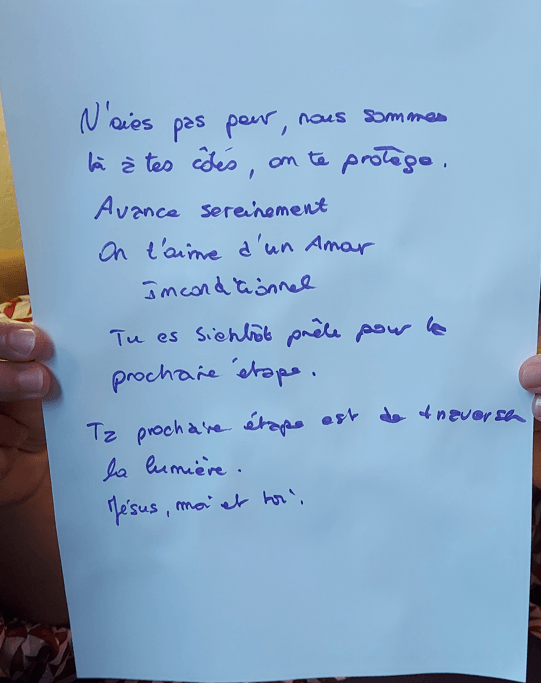 N'aies pas peur, nous sommes
là à tes côtés, on te protège.
Avance sereinement
On t'aime d'un Amour
Inconditionnel
Tu es bientôt prête pour la
prochaine étape.
Ta prochaine étape est de traverser
la lumière.
Jésus, moi et toi.